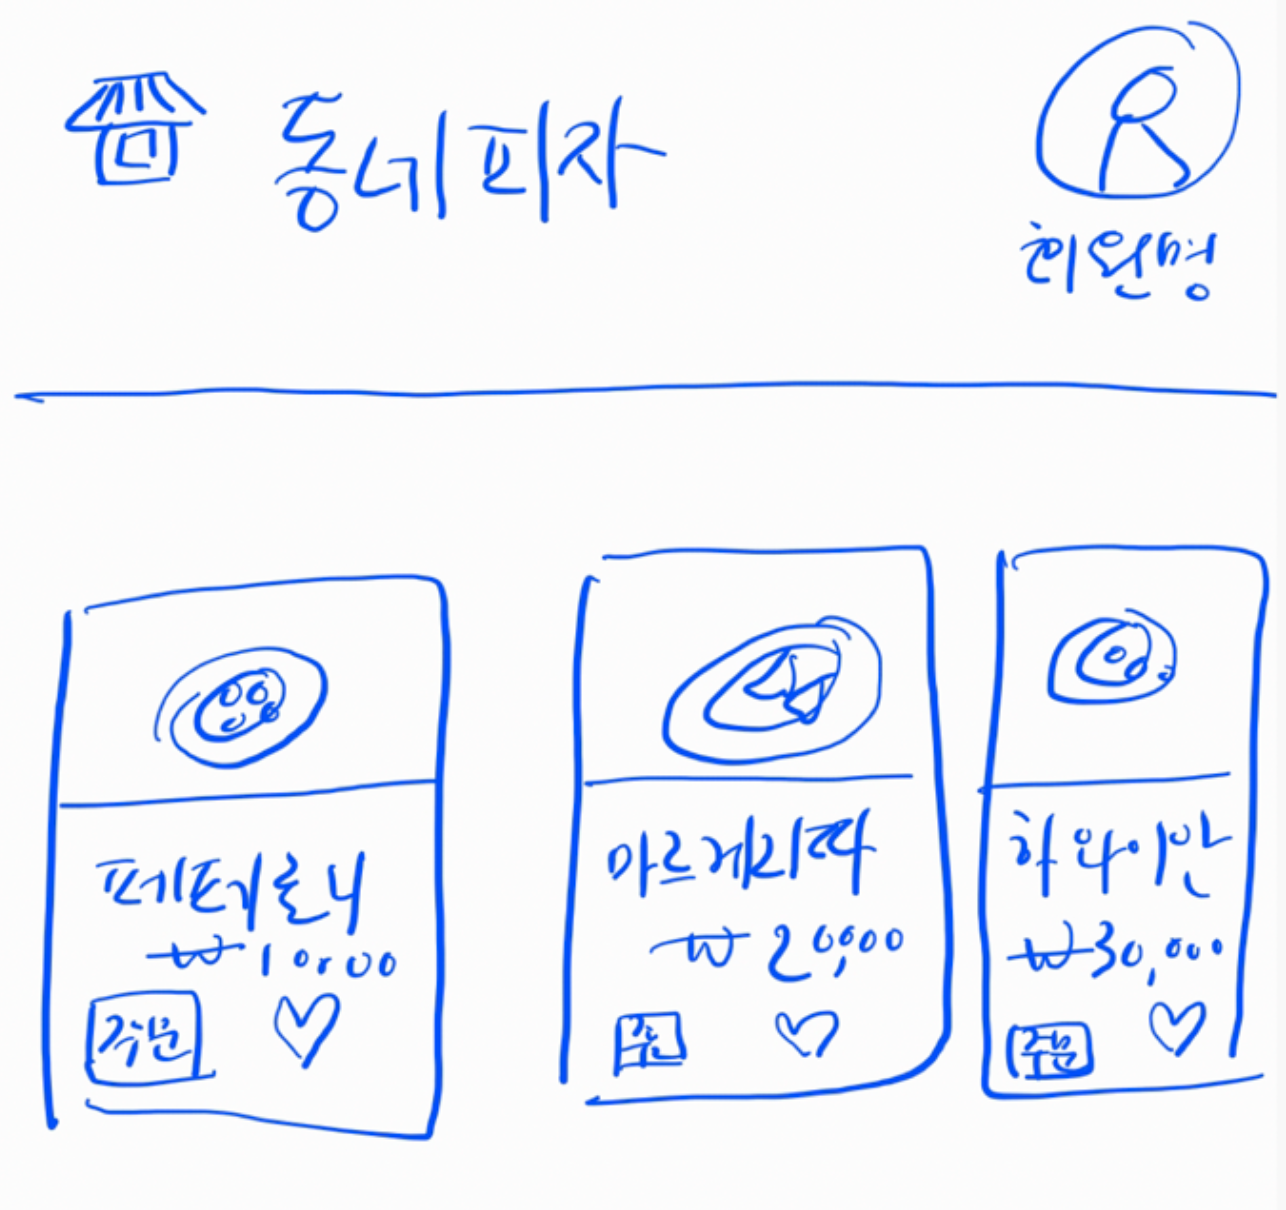 동네피자
회원명
페퍼로니
₩10,000
주문
마르게리따
₩20,000
주문
하와이안
₩30,000
주문